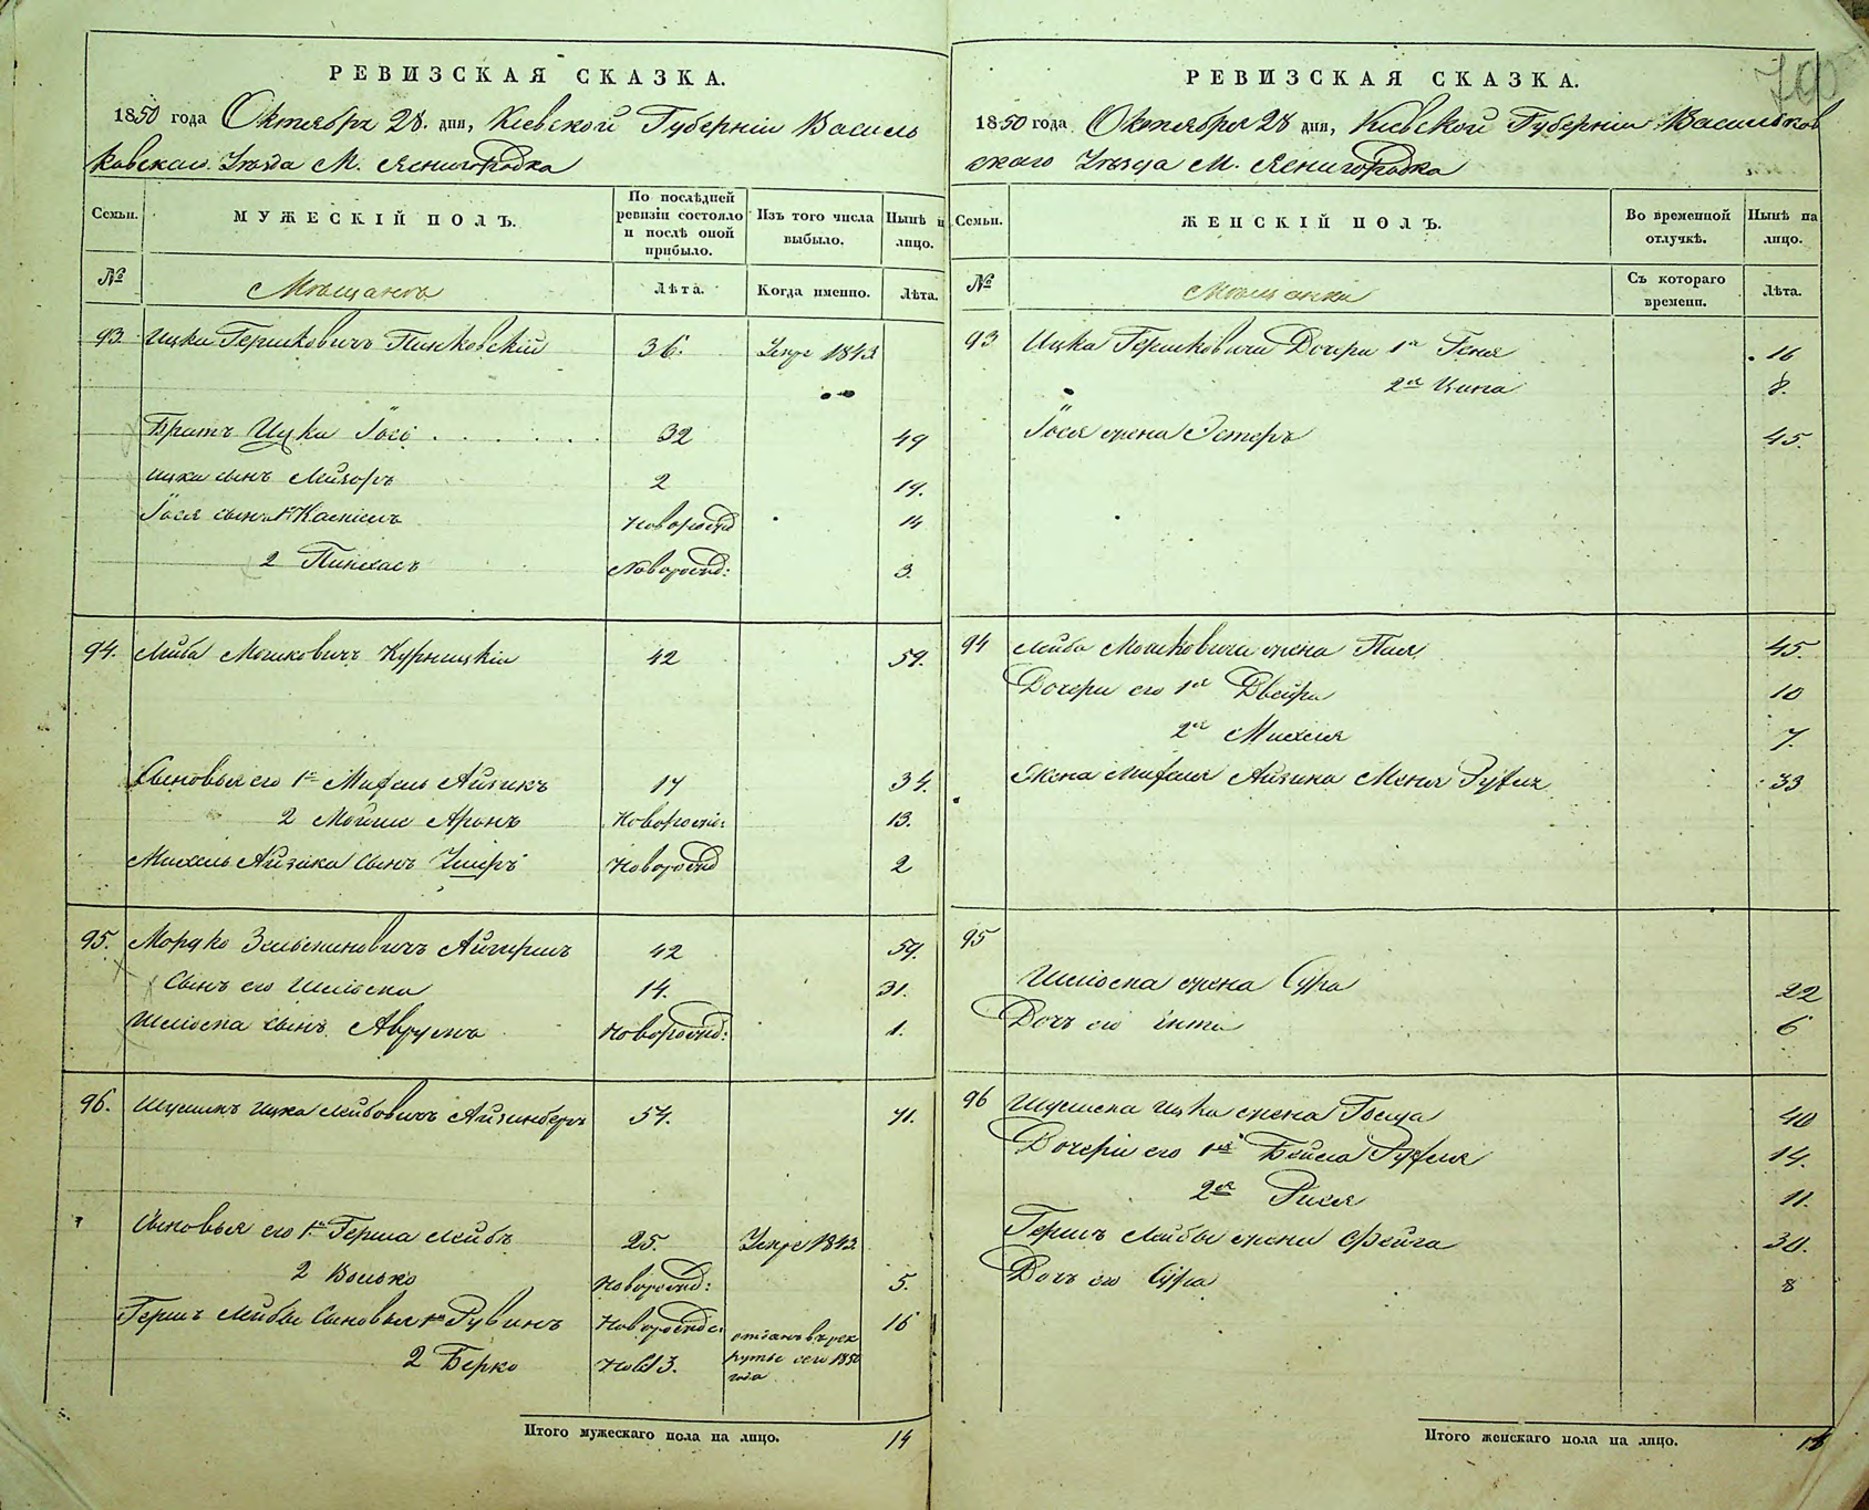 РЕВИЗСКАЯ СКАЗКА.
1850 года Октября 28. дня, Кіевской Губерніи Василь
ковскаго Уѣзда М. Ясногородка
Семьи.
МУЖЕСКІЙ ПОЛЪ.
По послѣдней
ревизіи состояло
и послѣ оной
прибыло.
Изъ того числа
выбыло.
Нынѣ н
лицо.
№
Мѣщанъ
Лѣта.
Когда именно.
Лѣта.
93 Ицко Гершковичъ Пинковскій 36. Умре 1843
Братъ Ицки Іось 32 49
Ицки сынъ Лейзоръ 2 19.
Іося сынъ 1 Новорожд 14
2 Пинхасъ Новорожд: 3.
94. Лейба Мошковичъ Курницкій 42 59.
Сыновья его 1й Михель Айзикъ 17 34.
2 Мойше Аронъ Новорожд: 13.
Михель Айзика сынъ Новорожд 2
95. Мордко Айзикъ 42 59.
Сынъ его 14. 31.
сынъ Аврумъ Новорожд: 1.
96. Ицка Лейбовичъ Айзинбергъ 54. 71.
Сыновья его 1й Герша Лейбъ 25. Умре 1843
2 Волько Новорожд: 5.
Гершъ Лейбы сыновья 1й Рувинъ Новорожд: 16
2 Берко Нов 13. отданъ въ рек
руты сего 1850
года
Итого мужескаго пола на лицо. 14
РЕВИЗСКАЯ СКАЗКА.
1850 года Октября 28 дня, Кіевской Губерніи Васильков
скаго Уѣзда М. Ясногородка
Семьи.
ЖЕНСКІЙ ПОЛЪ.
Во временной
отлучкѣ.
Нынѣ на
лицо.
№
Мѣщанки
Съ котораго
времени.
Лѣта.
93 Ицка Гершковича Дочери 1я Геня 16
2я Ципа 8.
Іося жена Эстеръ 45.
94 Лейба Мошковича жена Пая 45.
Дочери его 1я Двейра 10
2я Михля 7.
Жена Михеля Айзика Меня Рухля 33
95
жена Сура 22
Дочь его Ента 6
96 Ицки жена 40
Дочери его 1я Бейла Рухля 14.
2я Рися 11.
Гершъ Лейбы жена Фейга 30.
Дочь его Сура 8
Итого женскаго пола на лицо.